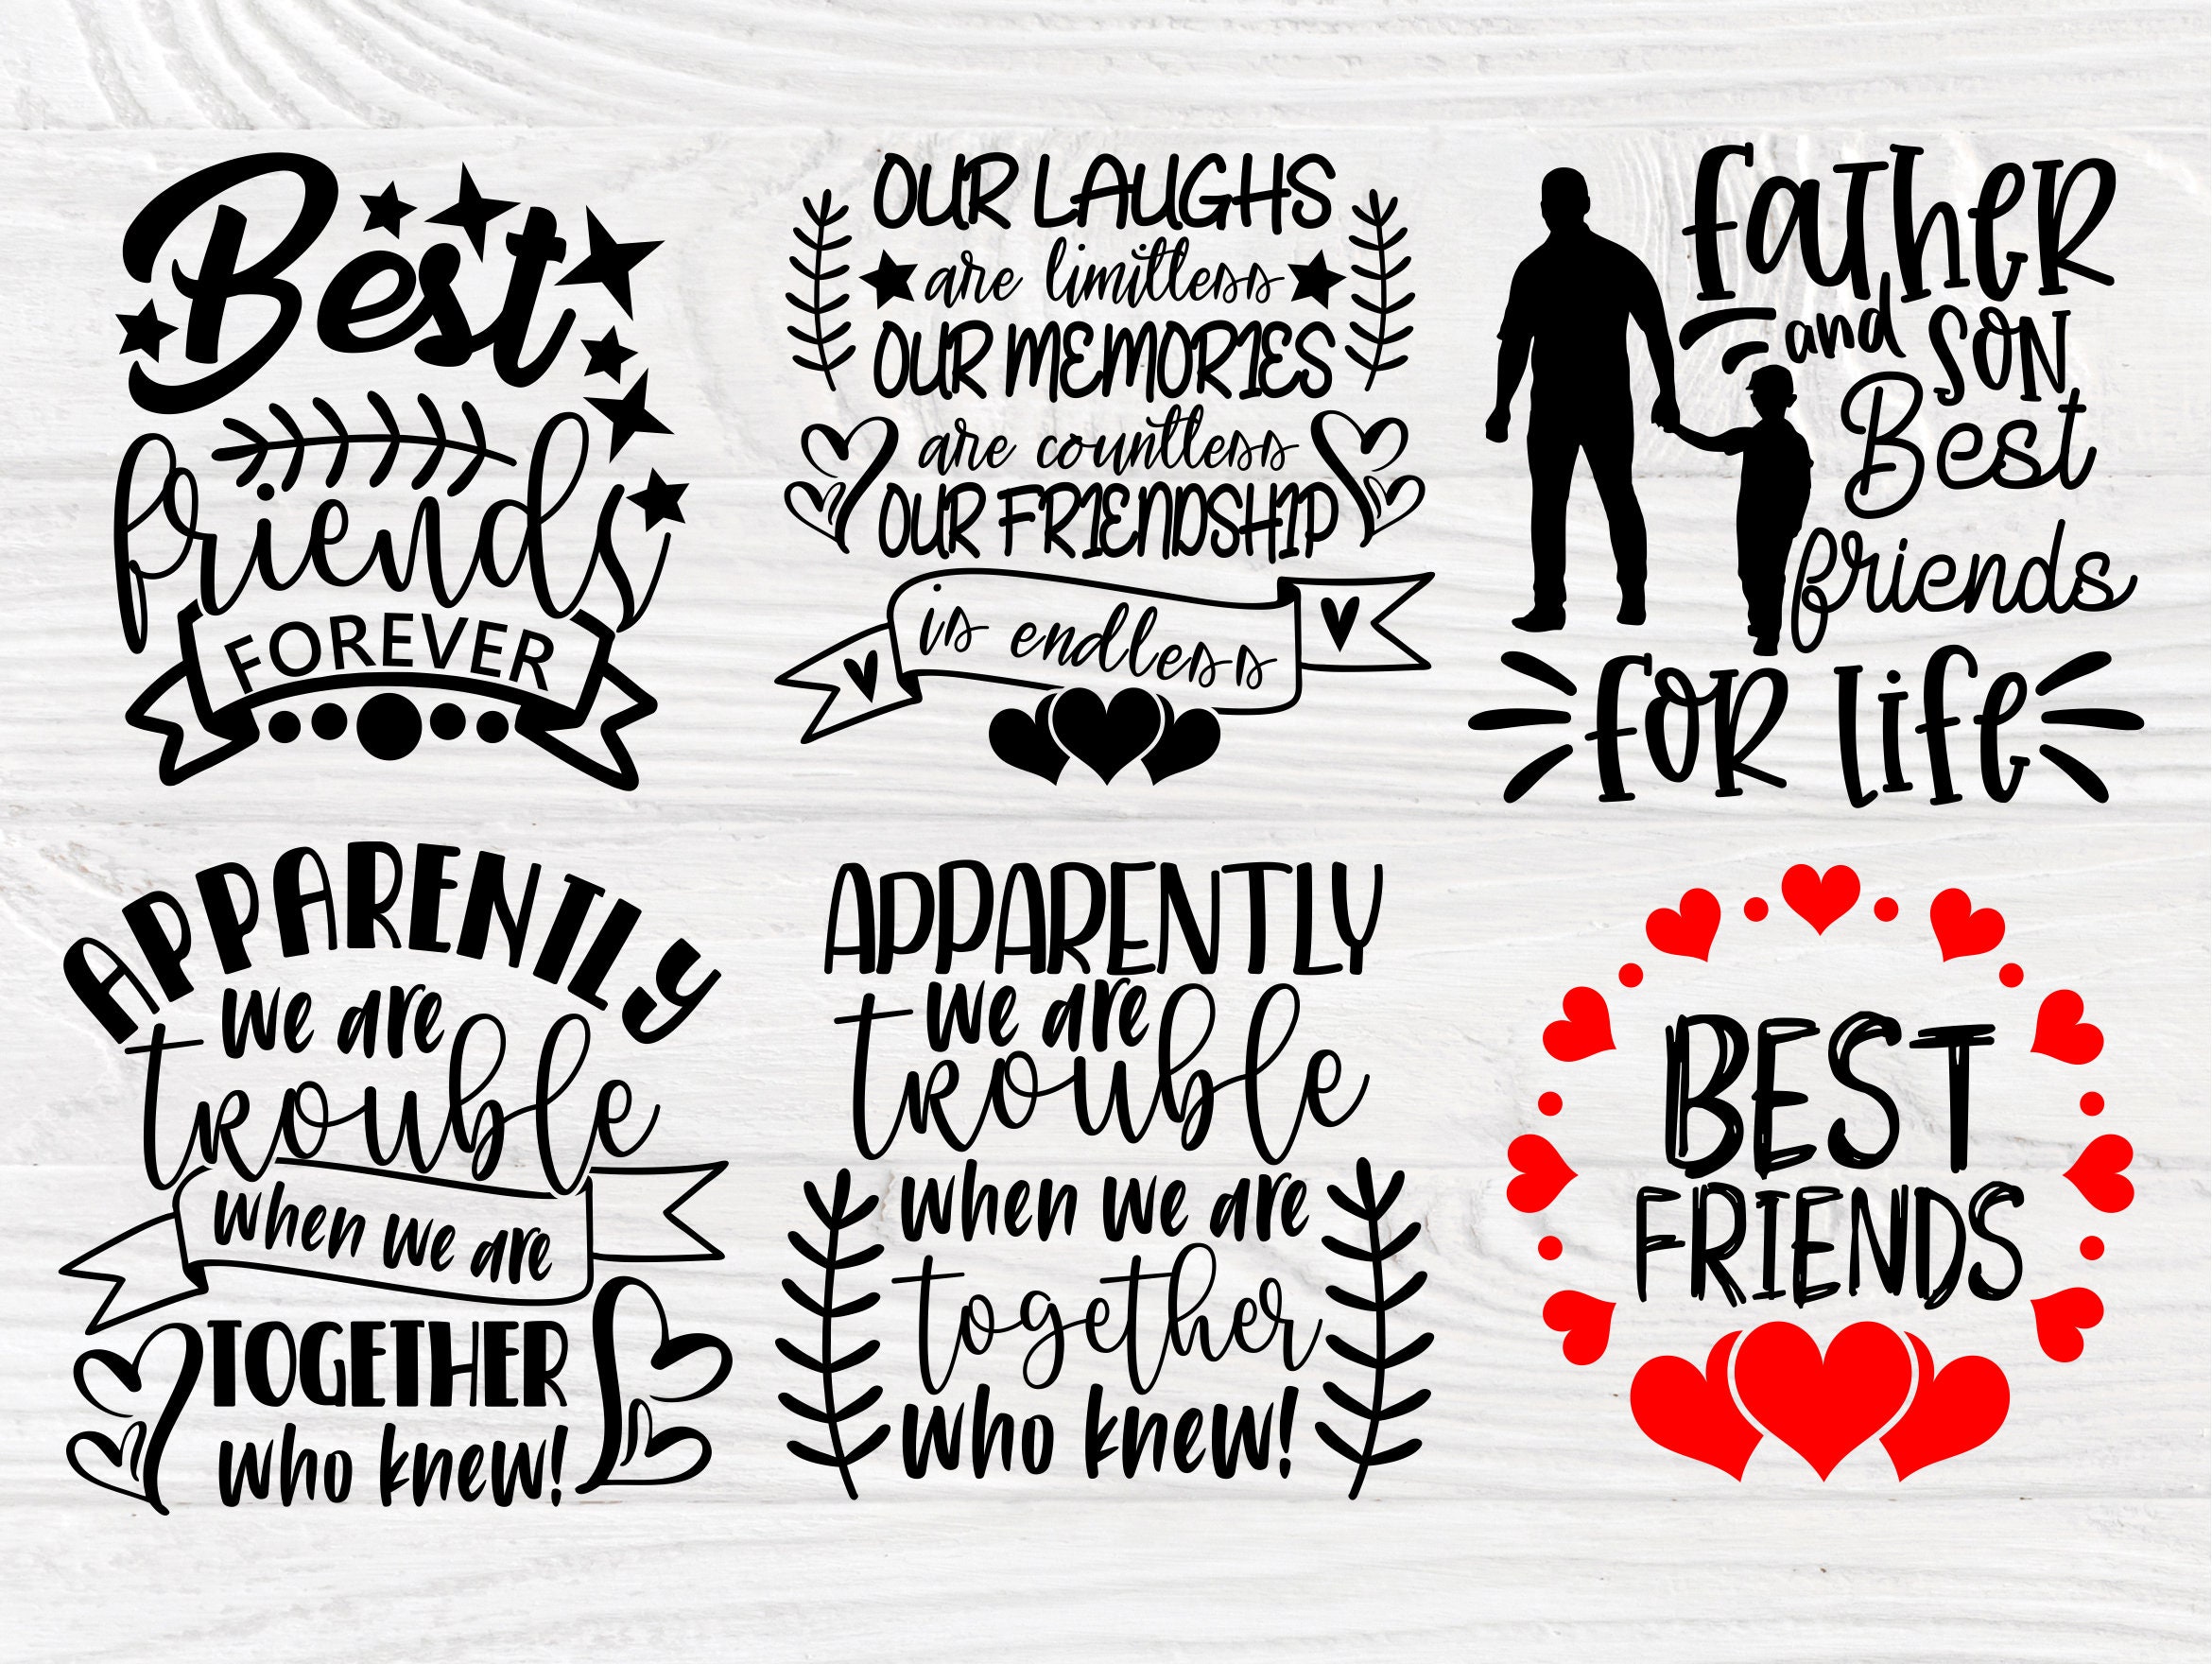 Best
friends
FOREVER
OUR LAUGHS
are limitless
OUR MEMORIES
are countless
OUR FRIENDSHIP
is endless
Father
and SON
Best
friends
FOR LIFE
APPARENTLY
we are
trouble
when we are
TOGETHER
who knew!
APPARENTLY
we are
trouble
when we are
together
who knew!
BEST
FRIENDS